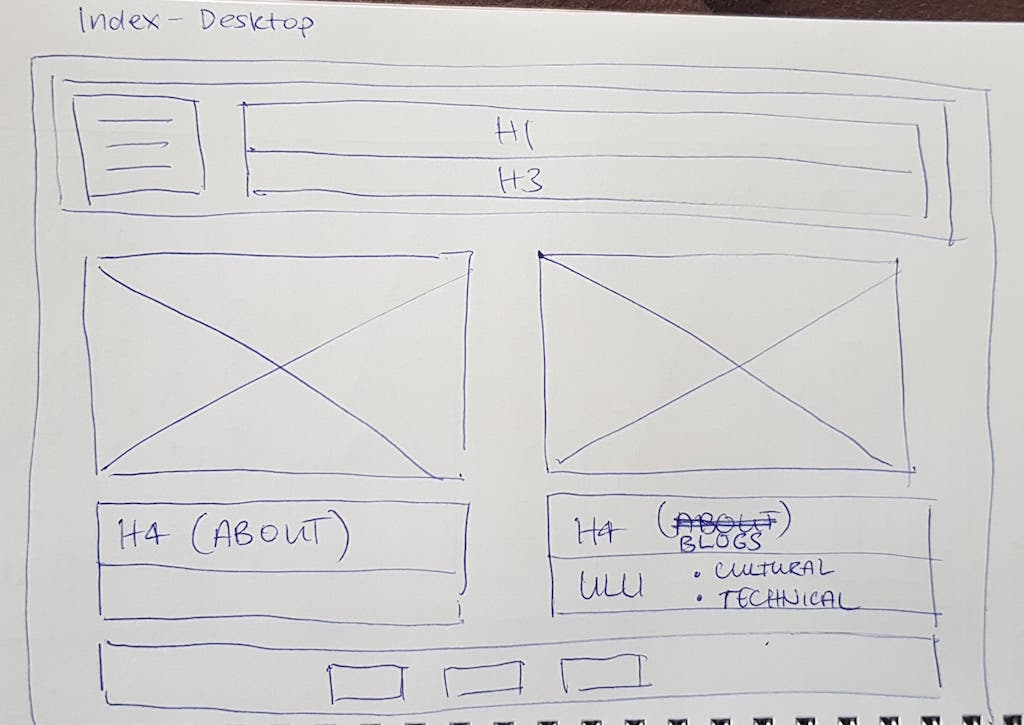 Index - Desktop
H1
H3
H4 (ABOUT)
H4 (BLOGS)
ULLI • CULTURAL
• TECHNICAL